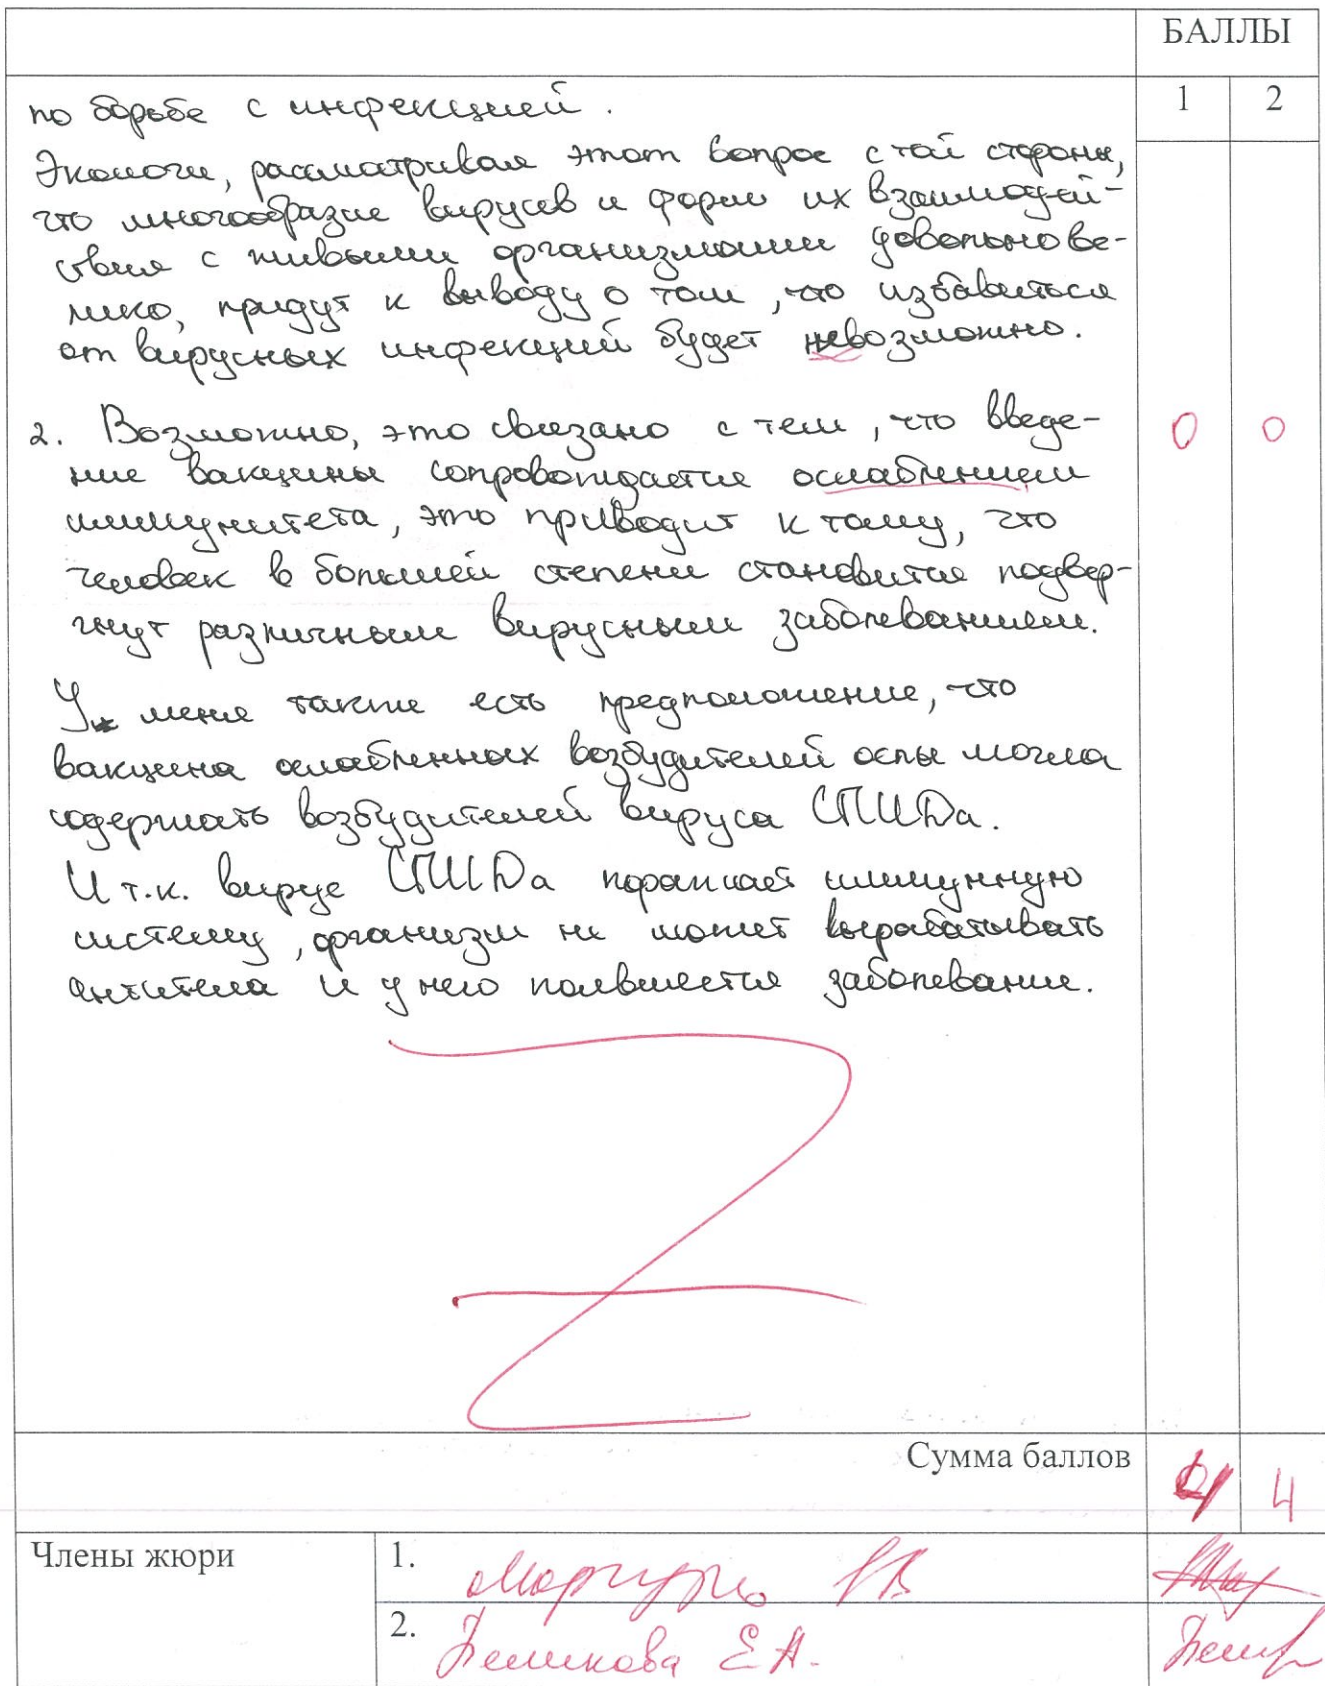 БАЛЛЫ
1 2
по борьбе с инфекцией.
Экологи, рассматривая этот вопрос с той стороны,
что многообразие вирусов и форм их взаимодей-
ствия с живыми организмами довольно ве-
лико, придут к выводу о том, что избавиться
от вирусных инфекций будет невозможно.
2. Возможно, это связано с тем, что введе-
ние вакцины сопровождается ослаблением
иммунитета, это приводит к тому, что
человек в большей степени становится подвер-
гнут различным вирусным заболеваниям.
0 0
У меня также есть предположение, что
вакцина ослабленных возбудителей оспы могла
содержать возбудителей вируса СПИДа.
И т.к. вирус СПИДа поражает иммунную
систему, организм не может вырабатывать
антитела и у него появляется заболевание.
Сумма баллов 4
Члены жюри 1.
2. Е.А.